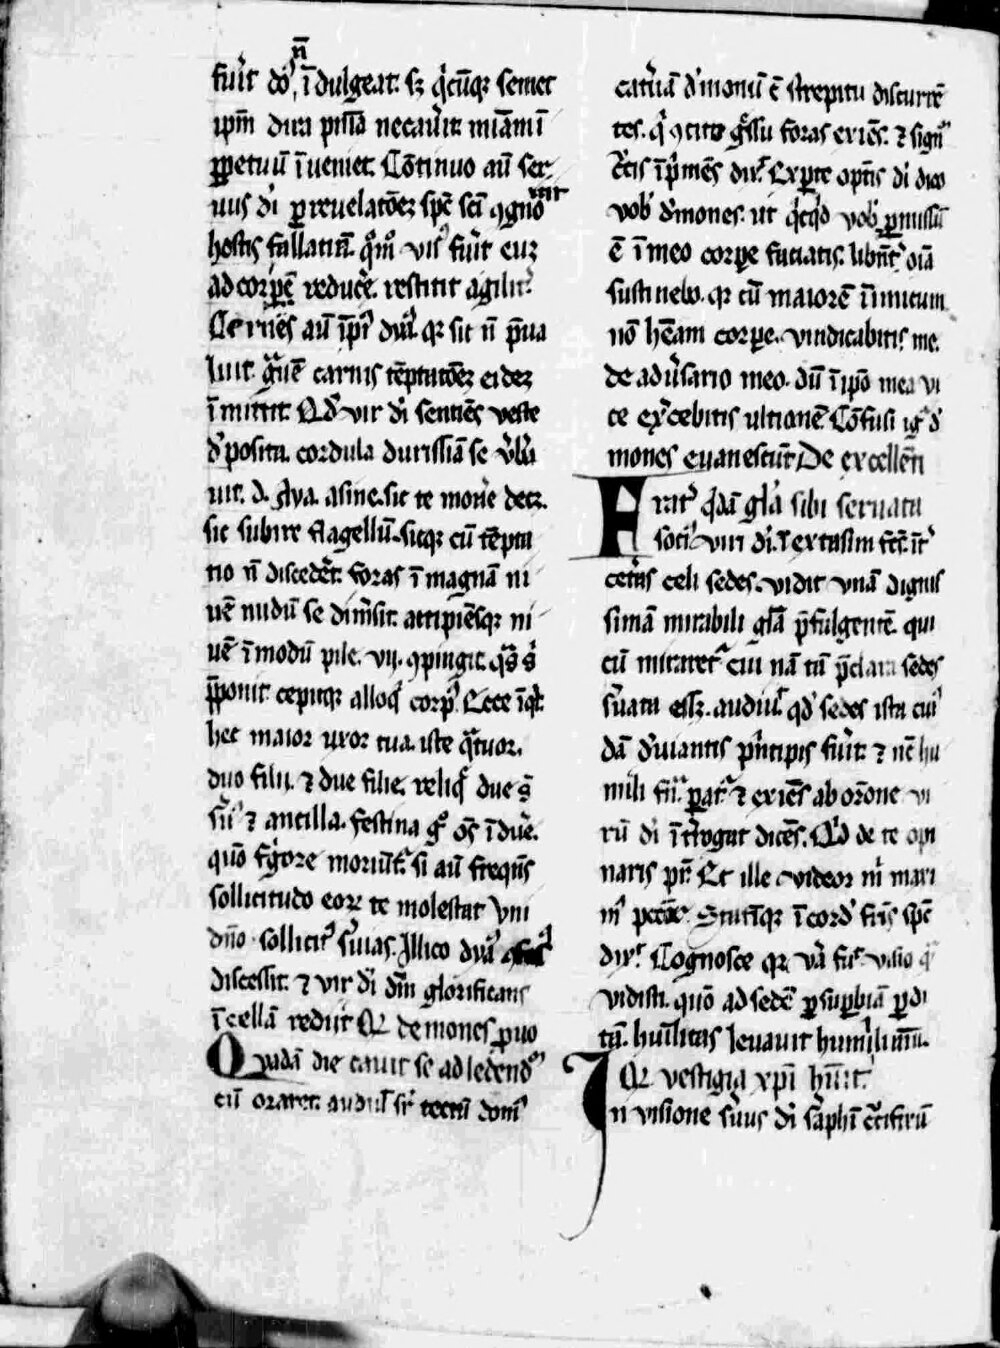 n̄
fu͛it do᷒ īdulgeat. sꝫ q̇cūqꝫ semet
ip̄m dura pn̄ia necau͛it. miā mī
ꝑpetuū īueniet. Cōtinuo aū ser-
uus di̇ ꝑ reuelatōeꝫ spē scī ꝯgnouit
hostis fallatiā. qͦmͦ vis᷒ fu͛it euꝫ
ad corpē reduc͛e. restitit agilit͛.
Cernēs aū īp̄i᷒ dyal᷒ qꝛ sic n̄ p̄ua
luit. gͣuē carnis tēptatōeꝫ eideꝫ
īmittit. Qd̓ vir di̇ sentiēs veste
d̓posita. cordula durissīa se v͛b͛a
uit. d. Aya. asine. sic te mane͛ decꝫ.
sic subire flagellū. sicqꝫ cū tēpta
tio n̄ disced͛et. foras ī magnā ni
uē nudū se dimisit. accipiēsqꝫ ni
uē ī modū pile. vii. ꝯpingit. qͣs s̓
ꝓponit cepitqꝫ alloq̇ corp᷒. Ecce īqt̓.
hec maior uxor tua. iste qͣtuor.
duo filii. ⁊ due filie. reliq̄ due s̄
s͛u᷒ ⁊ ancilla. festina gͦ oēs īdu͛e.
qm̄ frigore moriūt͛. si aū frequēs
sollicitudo eoꝝ te molestat vni
dn̄o sollicit᷒ s͛uias. Illico dyal᷒
discessit. ⁊ vir di̇ dm̄ glorificans
ī cellā rediit. Qꝛ demones p̲uo
Quadā die cauit se ad
cū oraret. audiuit sr̄ tectū dom᷒
cat͛uā d̓monū ē strepitu discurrē
tes. q̇ ꝯcito gͣssu foras exiēs. ⁊ sign᷒
c͛cis īp̄mēs dix͛. Ex ꝑte opt̄is di̇ dico
vob̓ d̓mones. ut q̇cq̇d vob̓ ꝑmissū
ē ī meo corpe faciatis. libēt͛ oīa
sustinebo. qꝛ cū maiorē īimicum
nō hēam corpe. vindicabitis me.
de adu͛sario meo. dū ī ip̄o mea vi
ce ex͛cebitis ultionē. Cōfusi igͥ d̓
mones euanescūt. De excellēti
Frat͛ q̇dā gl̄a sibi seruata
soci᷒ viri di̇. ī extasim fc̄t̄. īt͛
cet͛as celi sedes. vidit vnā dignis
simā mirabili gl̄a p̄fulgentē. qui
cū miraret͛ cui nā tā p̄clara sedes
s͛uata eēꝫ. audiuit qd̓ sedes ista cui᷒
dā d̓uiantis p̄ncipis fu͛it. ⁊ nc̄ hu
mili frāc. ꝑat͛. ⁊ exiēs ab or̄one vi
rū di̇ īt͛rogat dicēs. Qd̓ de te opi
naris pr̄. Et ille. videor m̓ maxi
m᷒ pccōꝛ. Statīqꝫ ī cord̓ fr̄is spc̄
dix͛. Cognosce qꝛ v͛a fu͛ visio q̄
vidisti. qm̄ ad sedē ꝑ supbiā ꝑdi
tā. hūilitas leuauit humilimū.
Qꝛ vestigia xp̄i hūit.
In visione s͛uus di̇ s͛aphī c͛cifixū